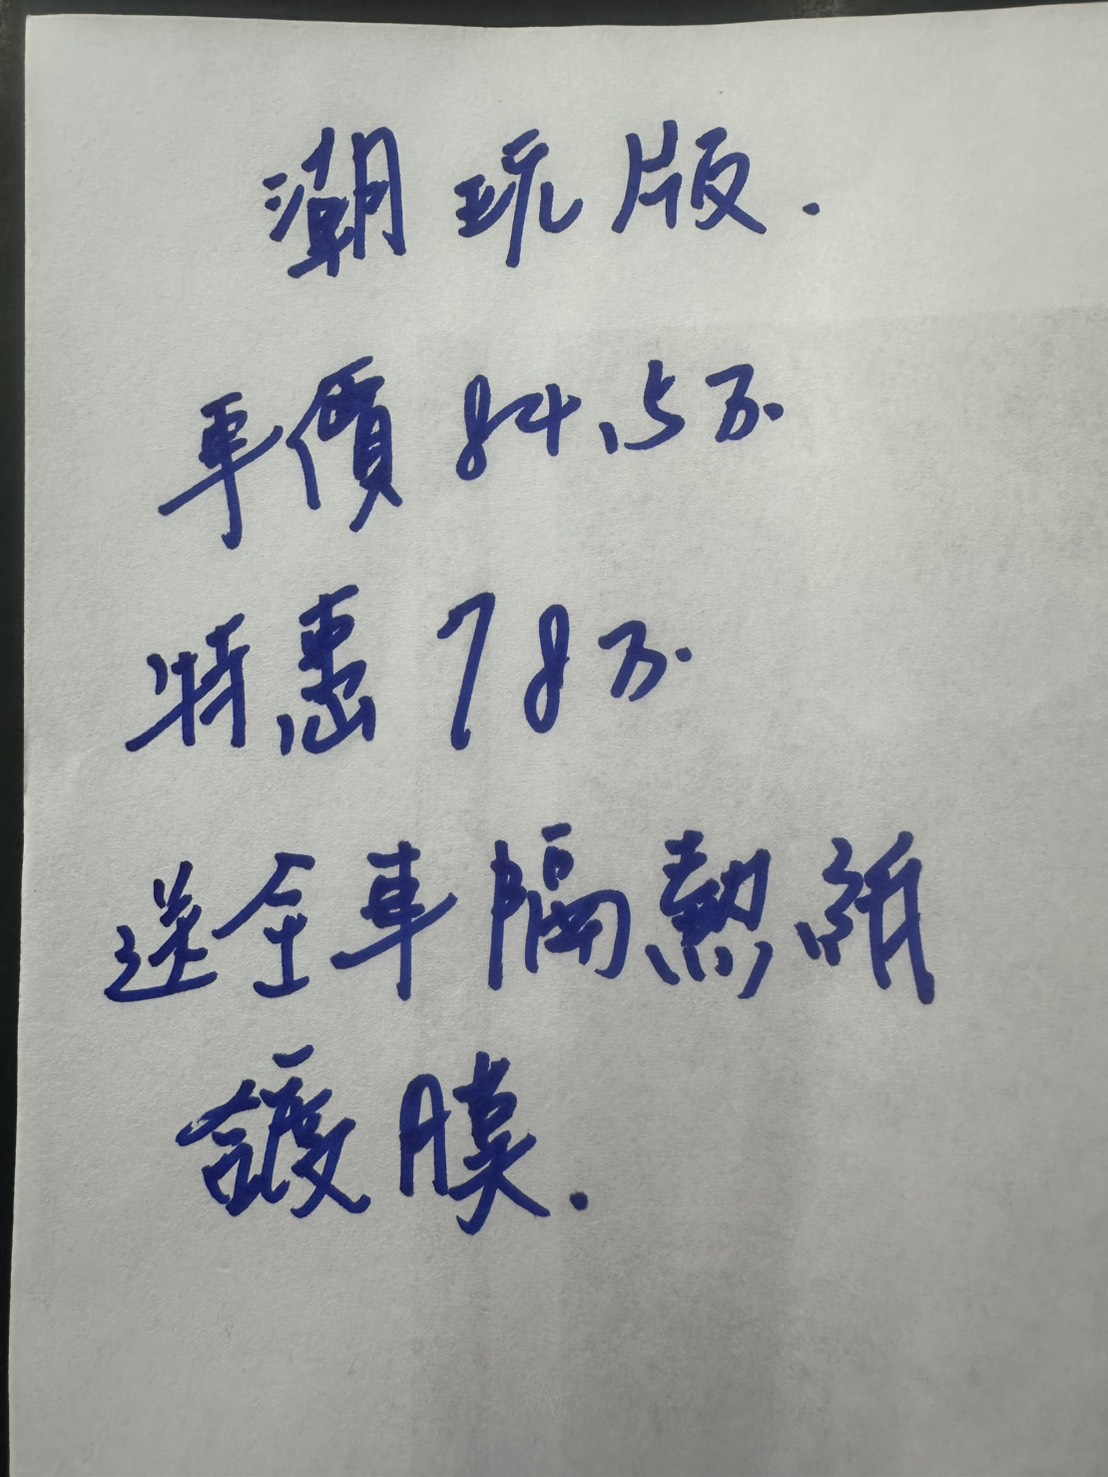 潮玩版.
車價84.5万.
特惠78万.
送全車隔熱紙
鍍膜.